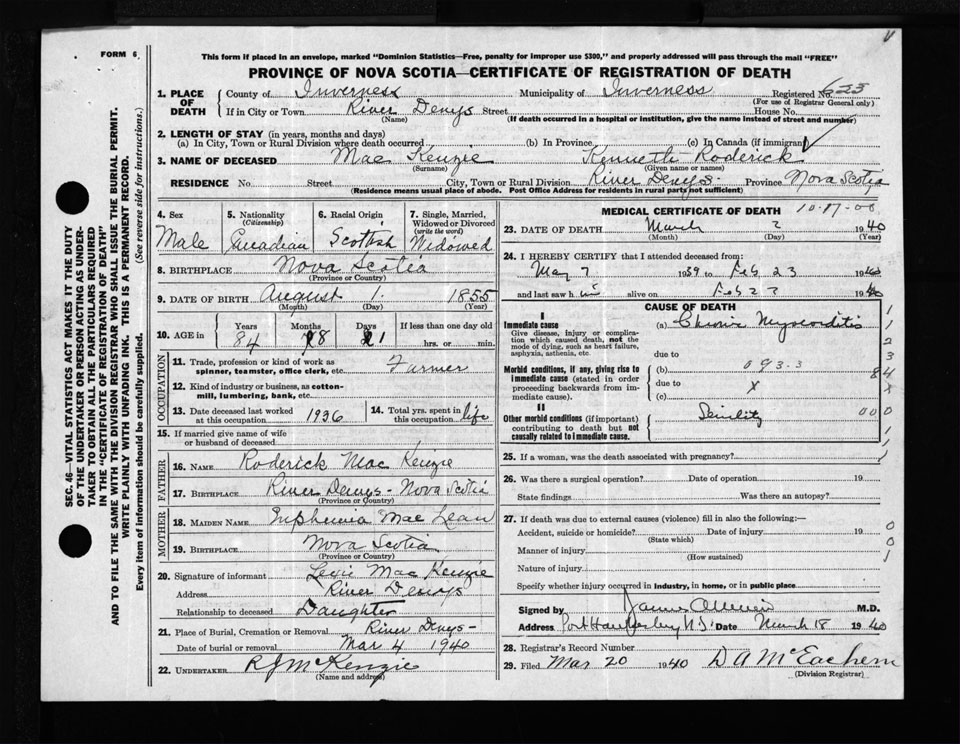 FORM 6
This form if placed in an envelope, marked "Dominion Statistics—Free, penalty for improper use $300," and properly addressed will pass through the mail "FREE"
PROVINCE OF NOVA SCOTIA—CERTIFICATE OF REGISTRATION OF DEATH
1. PLACE OF DEATH County of Inverness Municipality of Inverness Registered No. 623
(For use of Registrar General only)
If in City or Town River Denys Street House No.
(Name) (If death occurred in a hospital or institution, give the name instead of street and number)
2. LENGTH OF STAY (in years, months and days)
(a) In City, Town or Rural Division where death occurred (b) In Province (c) In Canada (if immigrant)
3. NAME OF DECEASED Mac Kenzie Kenneth Roderick
(Surname) (Given name or names)
RESIDENCE No. Street City, Town or Rural Division River Denys. Province Nova Scotia
(Residence means usual place of abode. Post Office Address for residents in rural parts not sufficient)
4. Sex Male
5. Nationality (Citizenship) Canadian
6. Racial Origin Scottish
7. Single, Married, Widowed or Divorced (write the word) Widowed
8. BIRTHPLACE Nova Scotia
(Province or Country)
9. DATE OF BIRTH August 1. 1855
(Month) (Day) (Year)
10. AGE in Years Months Days If less than one day old
84 8 1 hrs. or min.
OCCUPATION
11. Trade, profession or kind of work as spinner, teamster, office clerk, etc. Farmer
12. Kind of industry or business, as cotton-mill, lumbering, bank, etc.
13. Date deceased last worked at this occupation 1936
14. Total yrs. spent in this occupation life
15. If married give name of wife or husband of deceased
FATHER
16. NAME Roderick Mac Kenzie
17. BIRTHPLACE River Denys - Nova Scotia
(Province or Country)
MOTHER
18. MAIDEN NAME Euphemia Mac Lean
19. BIRTHPLACE Nova Scotia
(Province or Country)
20. Signature of informant Lexie Mac Kenzie
Address River Denys
Relationship to deceased Daughter
21. Place of Burial, Cremation or Removal River Denys -
Date of burial or removal Mar 4 1940
22. UNDERTAKER R J McKenzie
(Name and address)
MEDICAL CERTIFICATE OF DEATH
23. DATE OF DEATH March 2 1940
(Month) (Day) (Year)
24. I HEREBY CERTIFY that I attended deceased from:
May 7 1939 to Feb 23 1940
and last saw him alive on Feb 23 1940
CAUSE OF DEATH
I
Immediate cause
Give disease, injury or complication which caused death, not the mode of dying, such as heart failure, asphyxia, asthenia, etc.
(a) Chronic Myocarditis
due to
Morbid conditions, if any, giving rise to immediate cause (stated in order proceeding backwards from immediate cause).
(b) 093.3
due to X
(c)
II
Other morbid conditions (if important) contributing to death but not causally related to immediate cause.
Senility
25. If a woman, was the death associated with pregnancy?
26. Was there a surgical operation? Date of operation 19
State findings Was there an autopsy?
27. If death was due to external causes (violence) fill in also the following:—
Accident, suicide or homicide? Date of injury 19
(State which)
Manner of injury
(How sustained)
Nature of injury
Specify whether injury occurred in industry, in home, or in public place
Signed by James M.D.
Address Port Hawkesbury N.S. Date March 18 1940
28. Registrar's Record Number
29. Filed Mar 20 1940 D A McEachern
(Division Registrar)
SEC. 46—VITAL STATISTICS ACT MAKES IT THE DUTY OF THE UNDERTAKER OR PERSON ACTING AS UNDERTAKER TO OBTAIN ALL THE PARTICULARS REQUIRED IN THE "CERTIFICATE OF REGISTRATION OF DEATH" AND TO FILE THE SAME WITH THE DIVISION REGISTRAR WHO SHALL ISSUE THE BURIAL PERMIT.
WRITE PLAINLY WITH UNFADING INK. THIS IS A PERMANENT RECORD.
Every item of information should be carefully supplied. (See reverse side for instructions.)